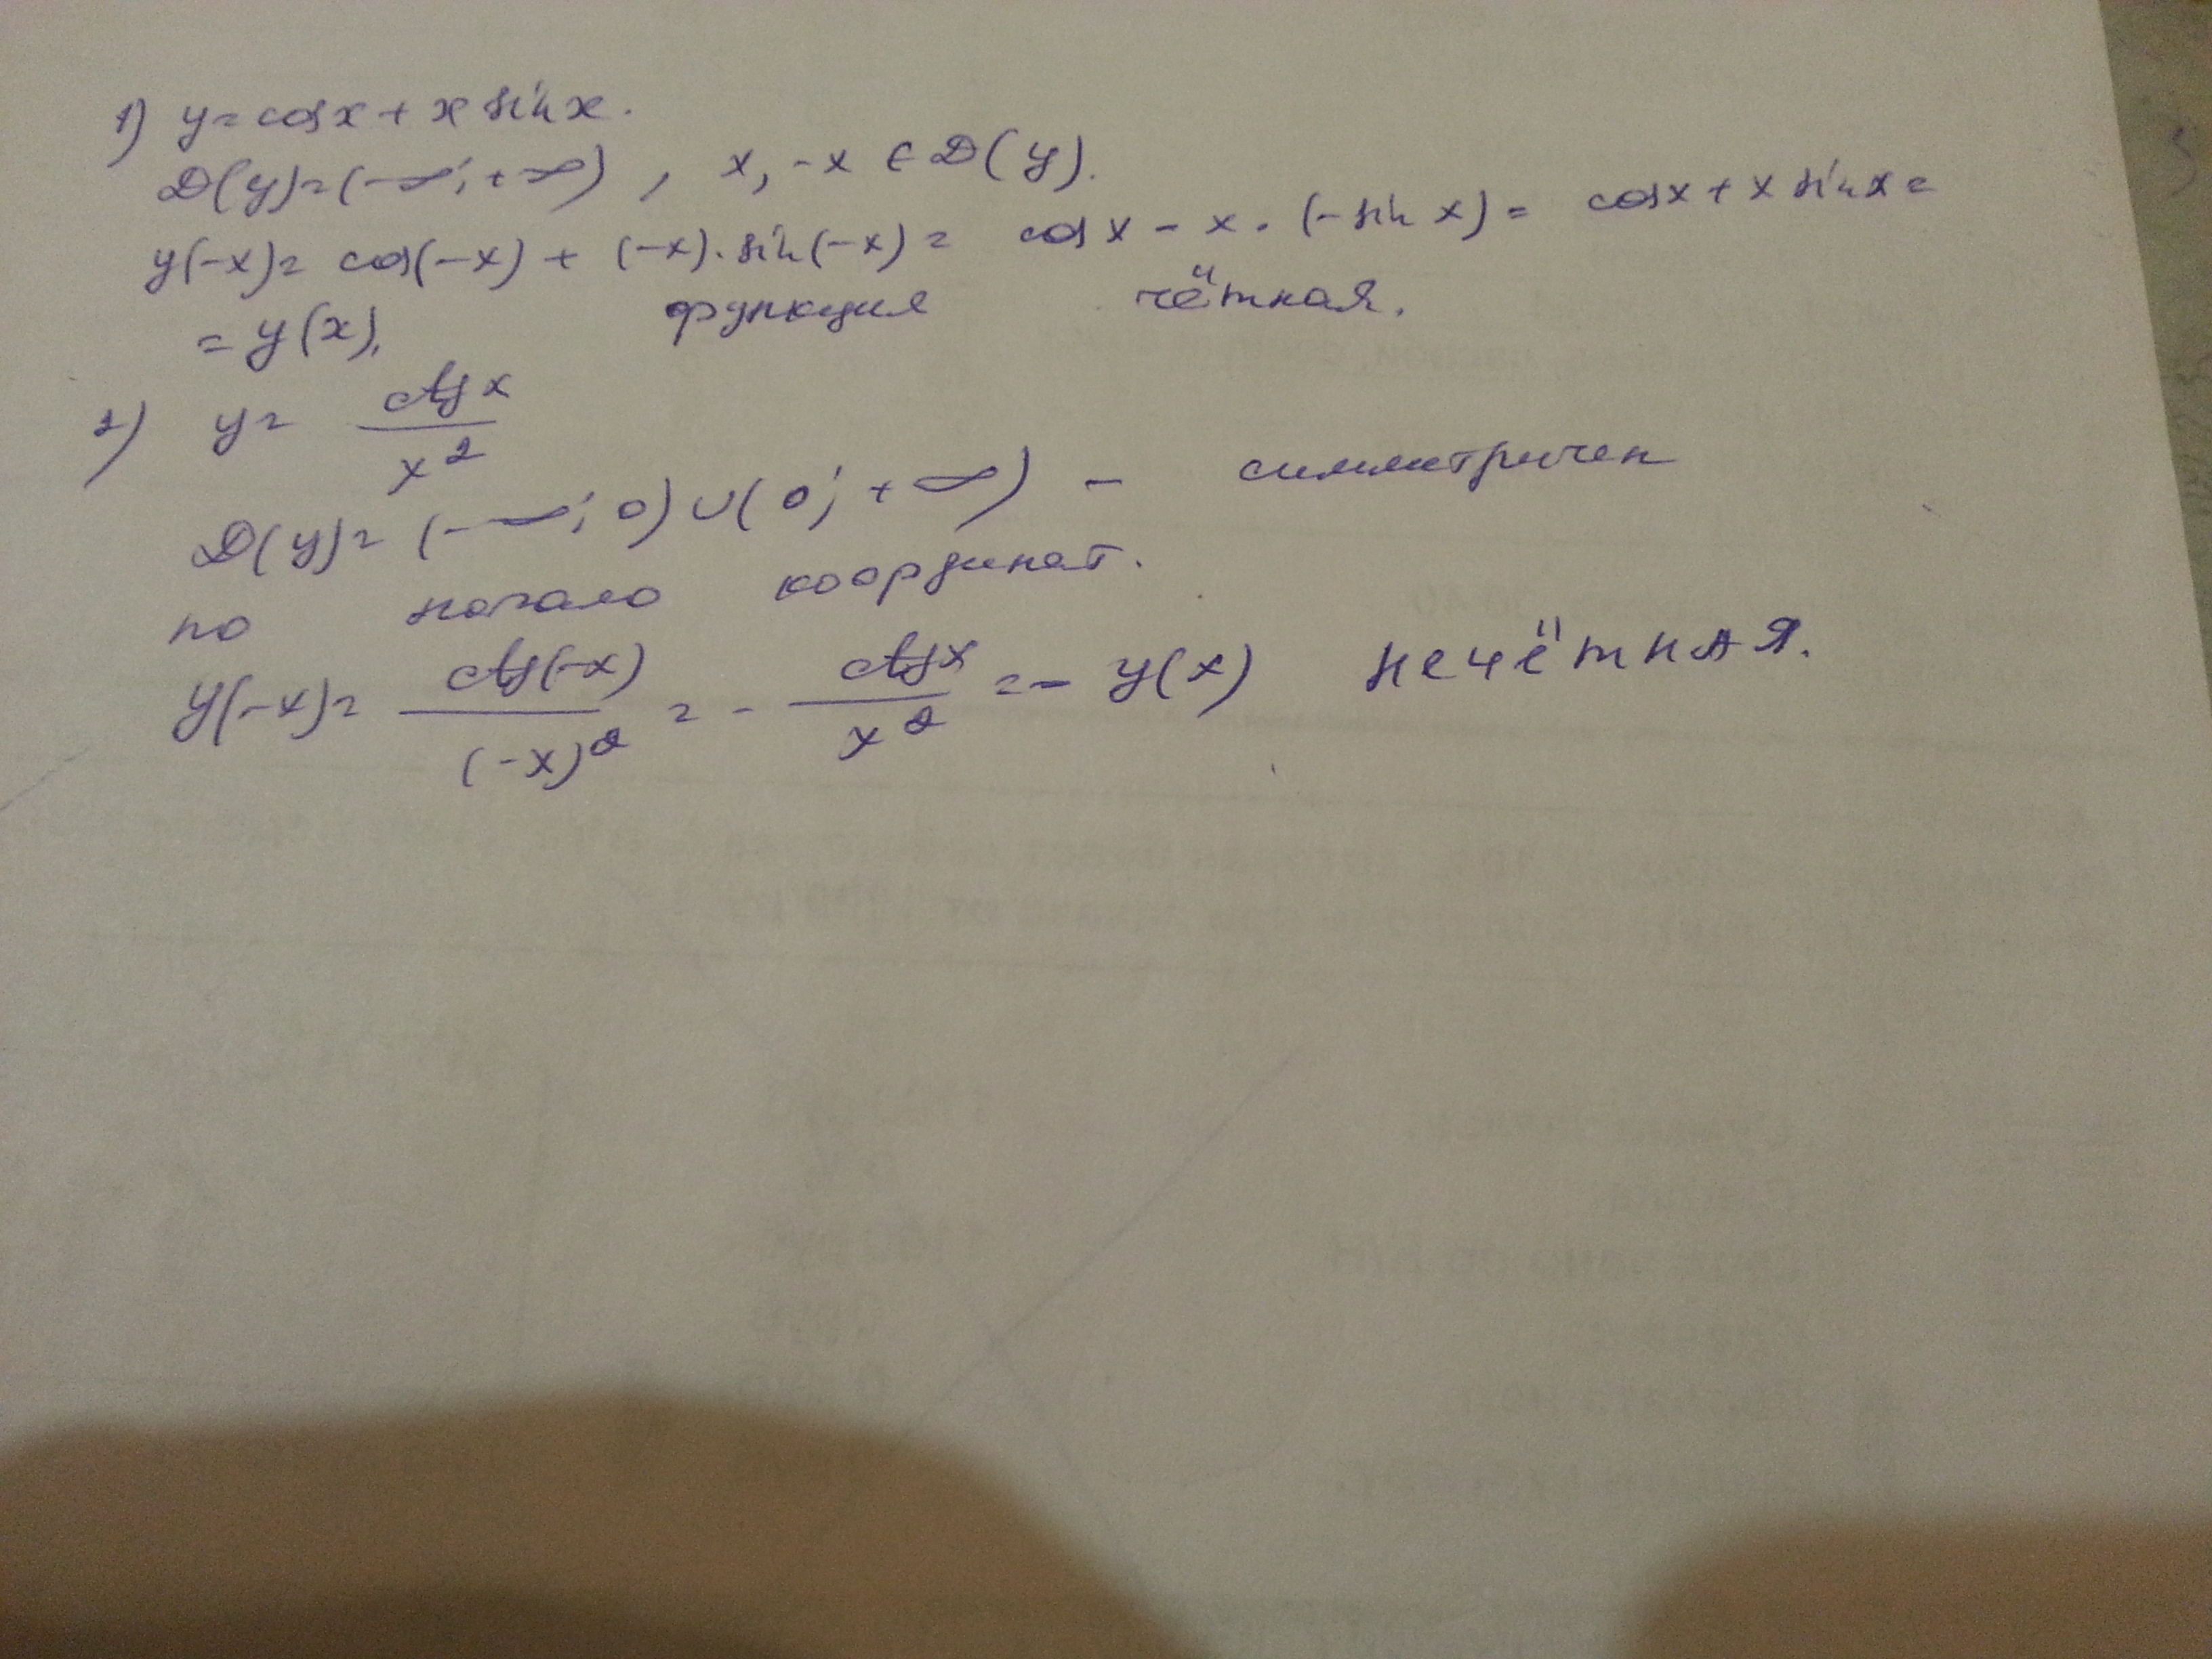 1) y = cos x + x sin x.
D(y) = (-∞; +∞), x, -x ∈ D(y).
y(-x) = cos(-x) + (-x)·sin(-x) = cos x - x·(-sin x) = cos x + x sin x =
= y(x), функция чётная.
2) y = ctg x / x²
D(y) = (-∞; 0) ∪ (0; +∞) - симметричен
по начало координат.
y(-x) = ctg(-x) / (-x)² = - ctg x / x² = - y(x) нечётная.